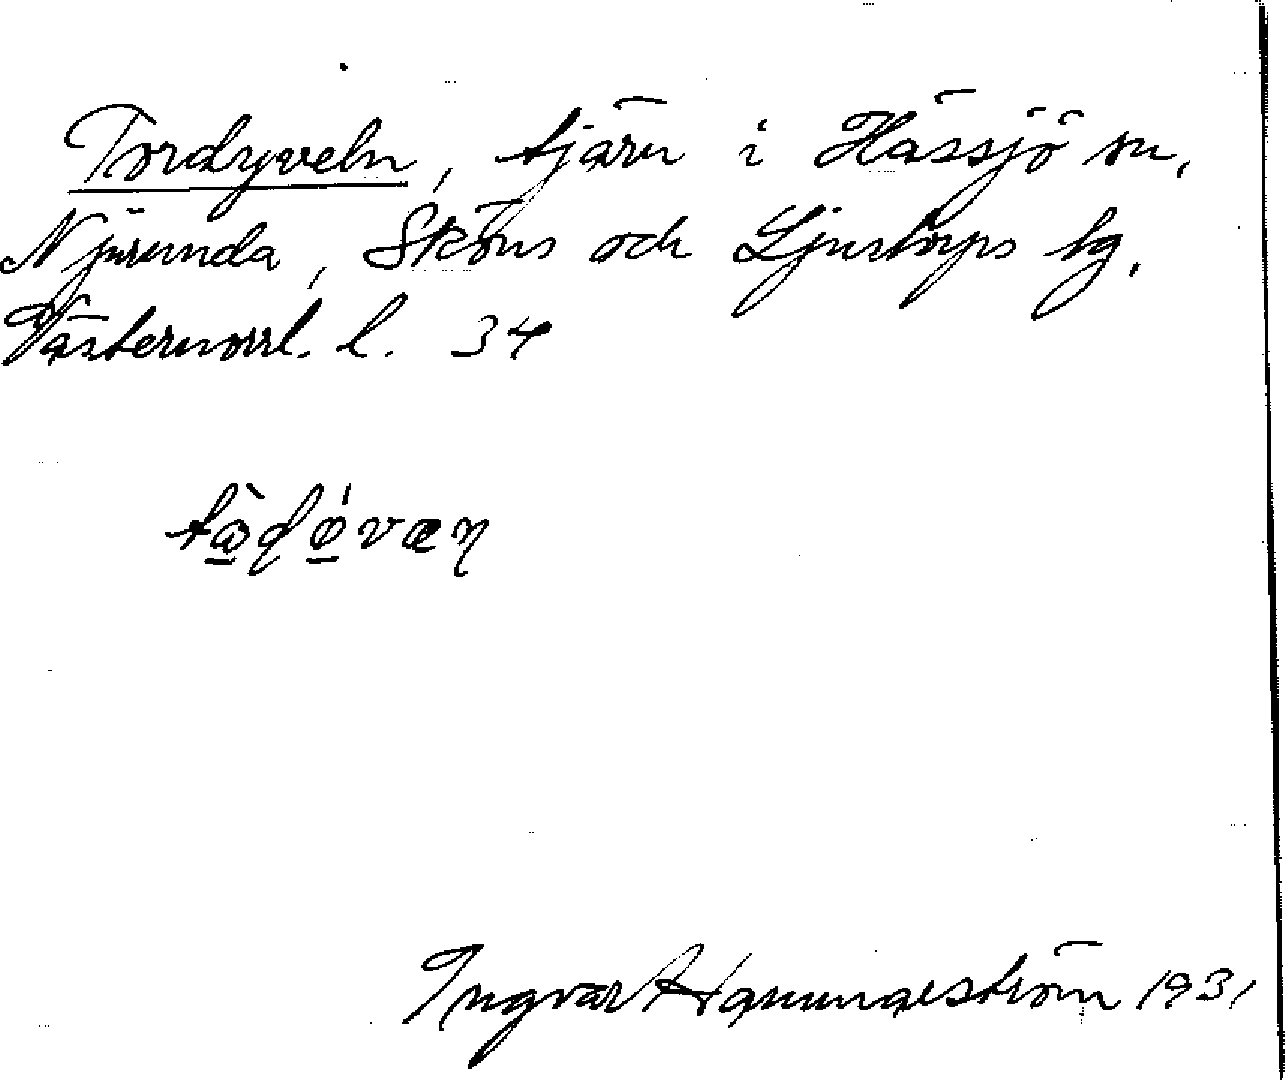 Tordyveln, tjärn i Hässjö sn,
Njurunda, Sköns och Ljustorps tg,
Västernorrl. l. 34
Ingvar Hammarström 1931